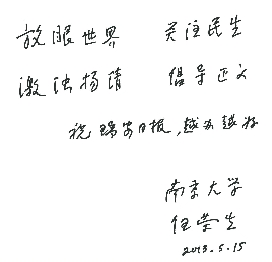 放眼世界 关注民生
激浊扬清 倡导正义
祝瑞安日报,越办越好
南京大学
任荣生
2013.5.15